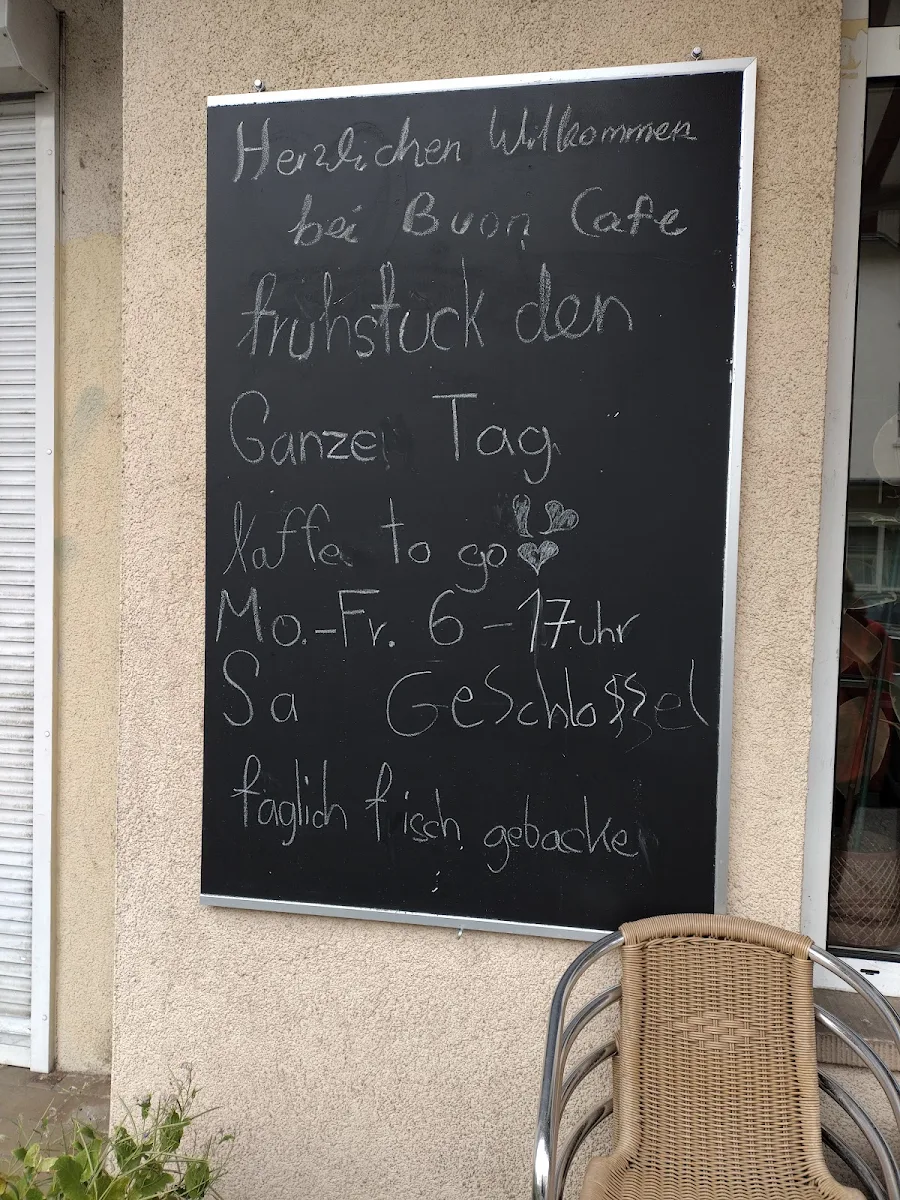 Herzlichen Willkommen
bei Buon Cafe
fruhstuck den
Ganzer Tag
kaffe to go
Mo.-Fr. 6-17 uhr
Sa Geschlossel
täglich frisch gebacke